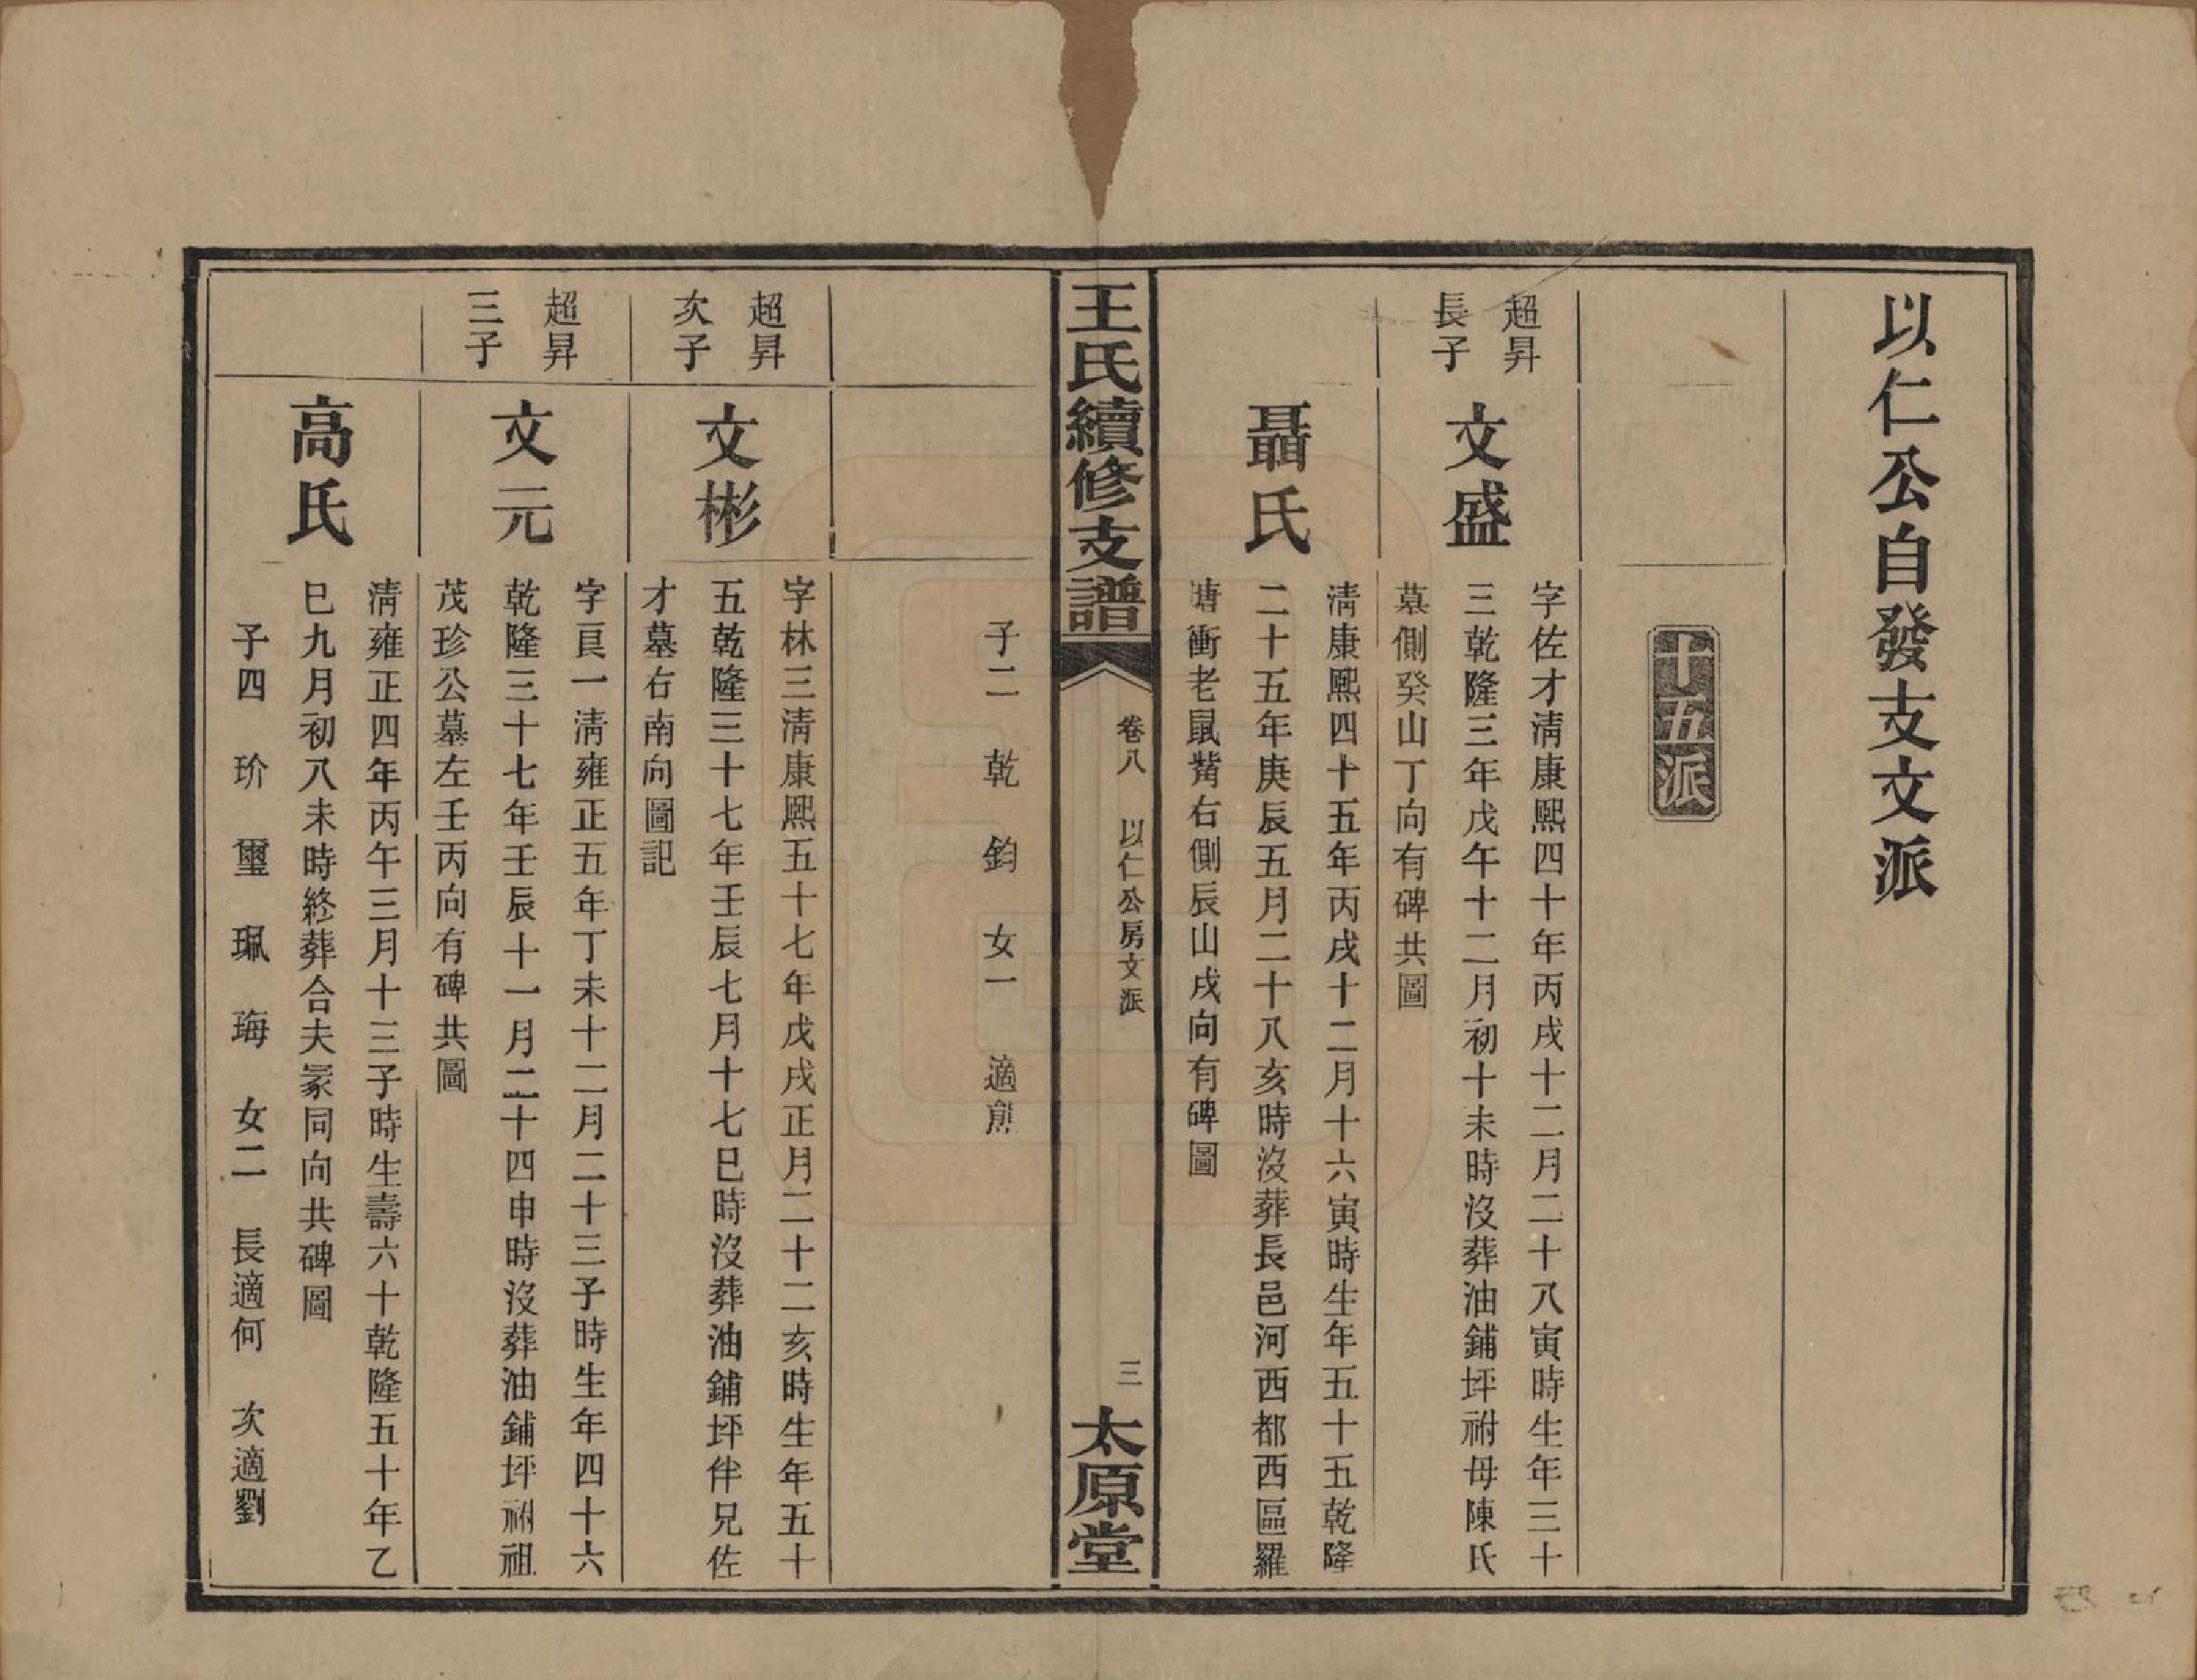 以仁公自發支文派
十五派
超昇
長子
文盛
字佐才淸康熙四十年丙戌十二月二十八寅時生年三十
三乾隆三年戊午十二月初十未時沒葬油鋪坪祔母陳氏
墓側癸山丁向有碑共圖
聶氏
淸康熙四十五年丙戌十二月十六寅時生年五十五乾隆
二十五年庚辰五月二十八亥時沒葬長邑河西都西區羅
塘衝老鼠觜右側辰山戌向有碑圖
王氏續修支譜
卷八 以仁公房文派
三
太原堂
子二 乾 鈞 女一 適
超昇
次子
文彬
字林三淸康熙五十七年戊戌正月二十二亥時生年五十
五乾隆三十七年壬辰七月十七巳時沒葬油鋪坪伴兄佐
才墓右南向圖記
超昇
三子
文元
字員一淸雍正五年丁未十二月二十三子時生年四十六
乾隆三十七年壬辰十一月二十四申時沒葬油鋪坪祔祖
茂珍公墓左壬丙向有碑共圖
高氏
淸雍正四年丙午三月十三子時生壽六十乾隆五十年乙
巳九月初八未時終葬合夫冢同向共碑圖
子四 玠 璽 珮 珻 女二 長適何 次適劉